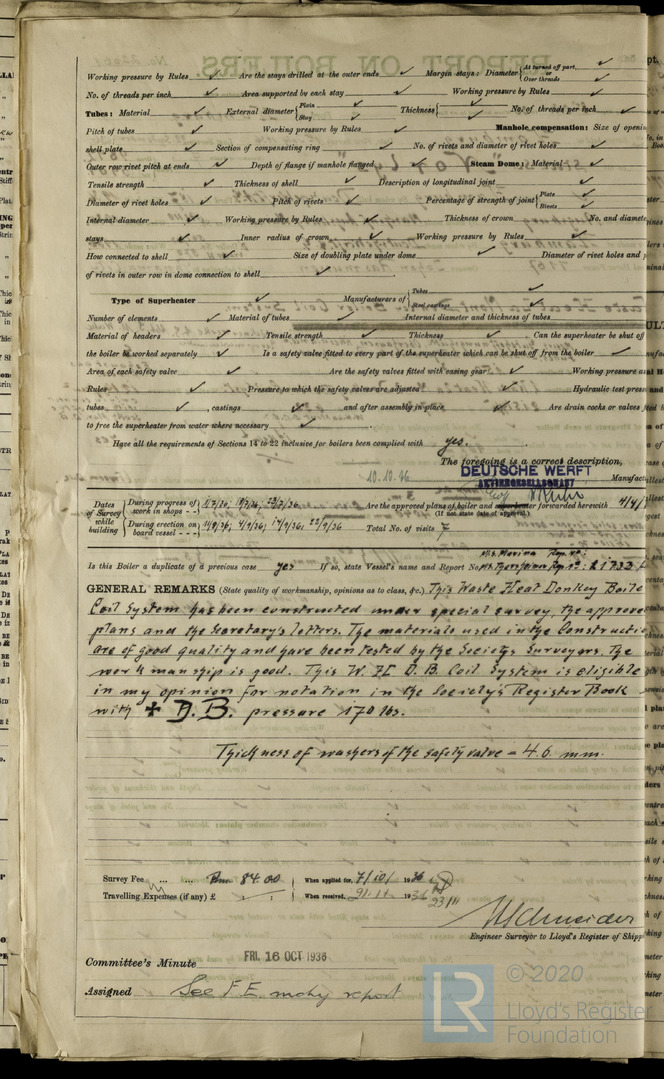 Working pressure by Rules ✓ Are the stays drilled at the outer ends ✓ Margin stays: Diameter { At turned off part, or Over threads ✓
No. of threads per inch ✓ Area supported by each stay ✓ Working pressure by Rules ✓
Tubes: Material ✓ External diameter { Plain Stay ✓ Thickness { ✓ No. of threads per inch ✓
Pitch of tubes ✓ Working pressure by Rules ✓ Manhole compensation: Size of openin
shell plate ✓ Section of compensating ring ✓ No. of rivets and diameter of rivet holes ✓
Outer row rivet pitch at ends ✓ Depth of flange if manhole flanged ✓ Steam Dome: Material ✓
Tensile strength ✓ Thickness of shell ✓ Description of longitudinal joint ✓
Diameter of rivet holes ✓ Pitch of rivets ✓ Percentage of strength of joint { Plate Rivets ✓
Internal diameter ✓ Working pressure by Rules ✓ Thickness of crown ✓ No. and diamete
stays ✓ Inner radius of crown ✓ Working pressure by Rules ✓
How connected to shell ✓ Size of doubling plate under dome ✓ Diameter of rivet holes and p
of rivets in outer row in dome connection to shell ✓
Type of Superheater ✓ Manufacturers of { Tubes Steel castings ✓
Number of elements ✓ Material of tubes ✓ Internal diameter and thickness of tubes
Material of headers ✓ Tensile strength ✓ Thickness ✓ Can the superheater be shut off
the boiler be worked separately ✓ Is a safety valve fitted to every part of the superheater which can be shut off from the boiler ✓
Area of each safety valve ✓ Are the safety valves fitted with easing gear ✓ Working pressure as
Rules ✓ Pressure to which the safety valves are adjusted ✓ Hydraulic test pres
tubes ✓ , castings ✓ and after assembly in place ✓ Are drain cocks or valves
to free the superheater from water where necessary ✓
Have all the requirements of Sections 14 to 22 inclusive for boilers been complied with yes.
The foregoing is a correct description,
10.10.36 DEUTSCHE WERFT Manufac
AKTIENGESELLSCHAFT
Dates of Survey while building { During progress of work in shops - -
During erection on board vessel - - - 11/8/36, 4/9/36, 14/9/36, 22/9/36
Are the approved plans of boiler and superheater forwarded herewith 4/4/
(If not state date of approval.)
Total No. of visits 7
Is this Boiler a duplicate of a previous case yes If so, state Vessel's name and Report No.
GENERAL REMARKS (State quality of workmanship, opinions as to class, &c.) This Waste Heat Donkey Boile
Coil System has been constructed under special survey, the approve
plans and the Secretary's letters. The materials used in the Constructi
are of good quality and have been tested by the Society's Surveyors. The
workmanship is good. This W. H. D. B. Coil System is eligible
in my opinion for notation in the Society's Register Book
with ✠ D.B. pressure 170 lbs.
Thickness of washers of the safety valve = 4.6 mm.
Survey Fee ... ... Rm 84.00 When applied for, 7/10/ 1936
Travelling Expenses (if any) £ : : When received, 1936
23/11
Engineer Surveyor to Lloyd's Register of Shipp
Committee's Minute FRI. 16 OCT 1936
Assigned See F.E. mchy report
LR © 2020
Lloyd's Register
Foundation